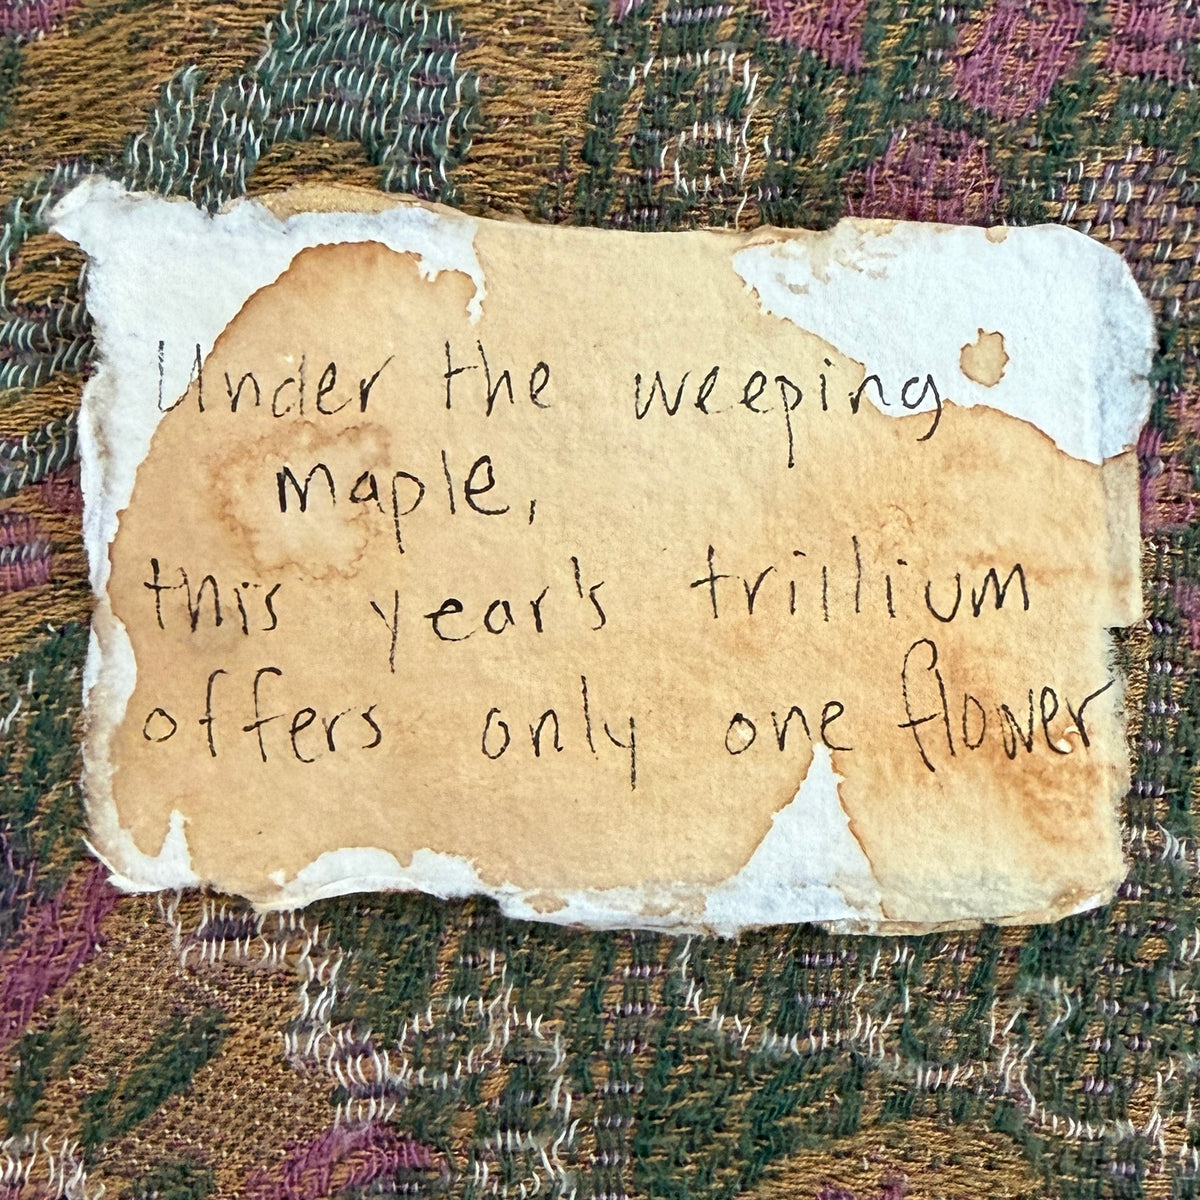 Under the weeping
maple,
this year's trillium
offers only one flower